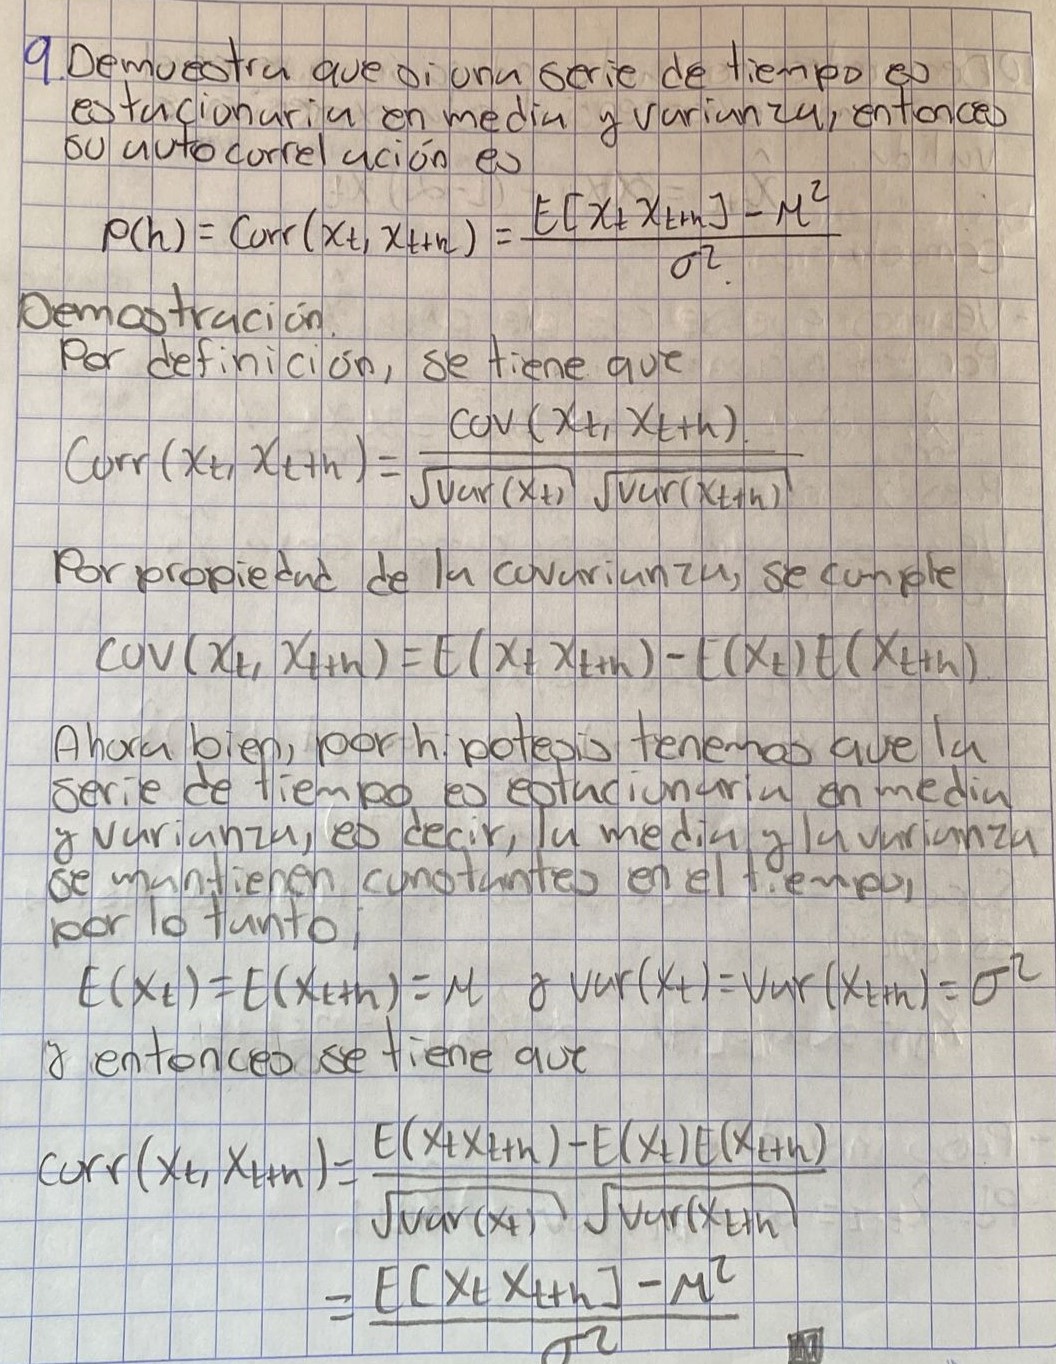 9. Demuestra que si una serie de tiempo es
estacionaria en media y varianza, entonces
su autocorrelación es
ρ(h) = Corr(Xt, Xt+h) = E[Xt Xt+h] - μ² / σ².
Demostración.
Por definición, se tiene que
Corr(Xt, Xt+h) = cov(Xt, Xt+h) / √var(Xt) √var(Xt+h)
Por propiedad de la covarianza, se cumple
cov(Xt, Xt+h) = E(Xt Xt+h) - E(Xt)E(Xt+h)
Ahora bien, por hipotesis tenemos que la
serie de tiempo es estacionaria en media
y varianza, es decir, la media y la varianza
se mantienen constantes en el tiempo,
por lo tanto;
E(Xt) = E(Xt+h) = μ y var(Xt) = Var(Xt+h) = σ²
y entonces se tiene que
corr(Xt, Xt+h) = E(XtXt+h) - E(Xt)E(Xt+h) / √var(Xt) √var(Xt+h)
= E[Xt Xt+h] - μ² / σ²